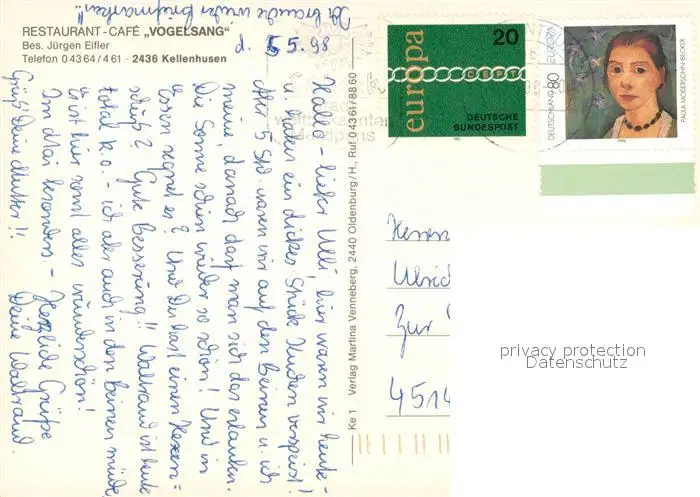 Ich brauche wieder Briefmarken!!
RESTAURANT-CAFÉ „VOGELSANG"
Bes. Jürgen Eifler
Telefon 0 43 64 / 4 61 · 2436 Kellenhusen
d. 5.5.98
Hallo - lieber Ulli, hier waren wir heute -
u. haben ein dickes Stück Kuchen verspeist!
Aber 5 Std. waren wir auf den Beinen u. ich
meine, danach darf man sich das erlauben.
Die Sonne schien wieder so schön! Und in
Essen regnet es? Und Du hast einen Hexen=
schuß? Gute Besserung!! Waltraud ist heute
total k.o. - ich aber auch in den Beinen müde,
es ist hier sonst alles wunderschön!
Im Mai besonders. - Herzliche Grüße
Deine Waltraud.
Gruß! Deine Mutter!!
Ke 1 Verlag Martina Venneberg, 2440 Oldenburg/H., Ruf 0 43 61 / 88 60
europa
20
CEPT
DEUTSCHE
BUNDESPOST
DEUTSCHLAND 80
EUROPA
PAULA MODERSOHN-BECKER
1996
Herrn
Ulrich
Zur
4514
privacy protection
Datenschutz